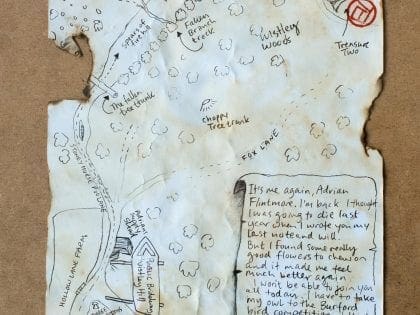 Fallen
Branch
track
Wistley
Woods
Treasure
Two
The fallen
tree trunk
choppy
Tree trunk
FOX LANE
HOLLOW LANE FARM
Public Building
It's me again, Adrian
Flintmore. I'm back. I thought
I was going to die last
year when I wrote you my
last note and will.
But I found some really
good flowers to chew on
and it made me feel
much better again.
I won't be able to join you
all today. I have to take
my owl to the Burford
bird competition